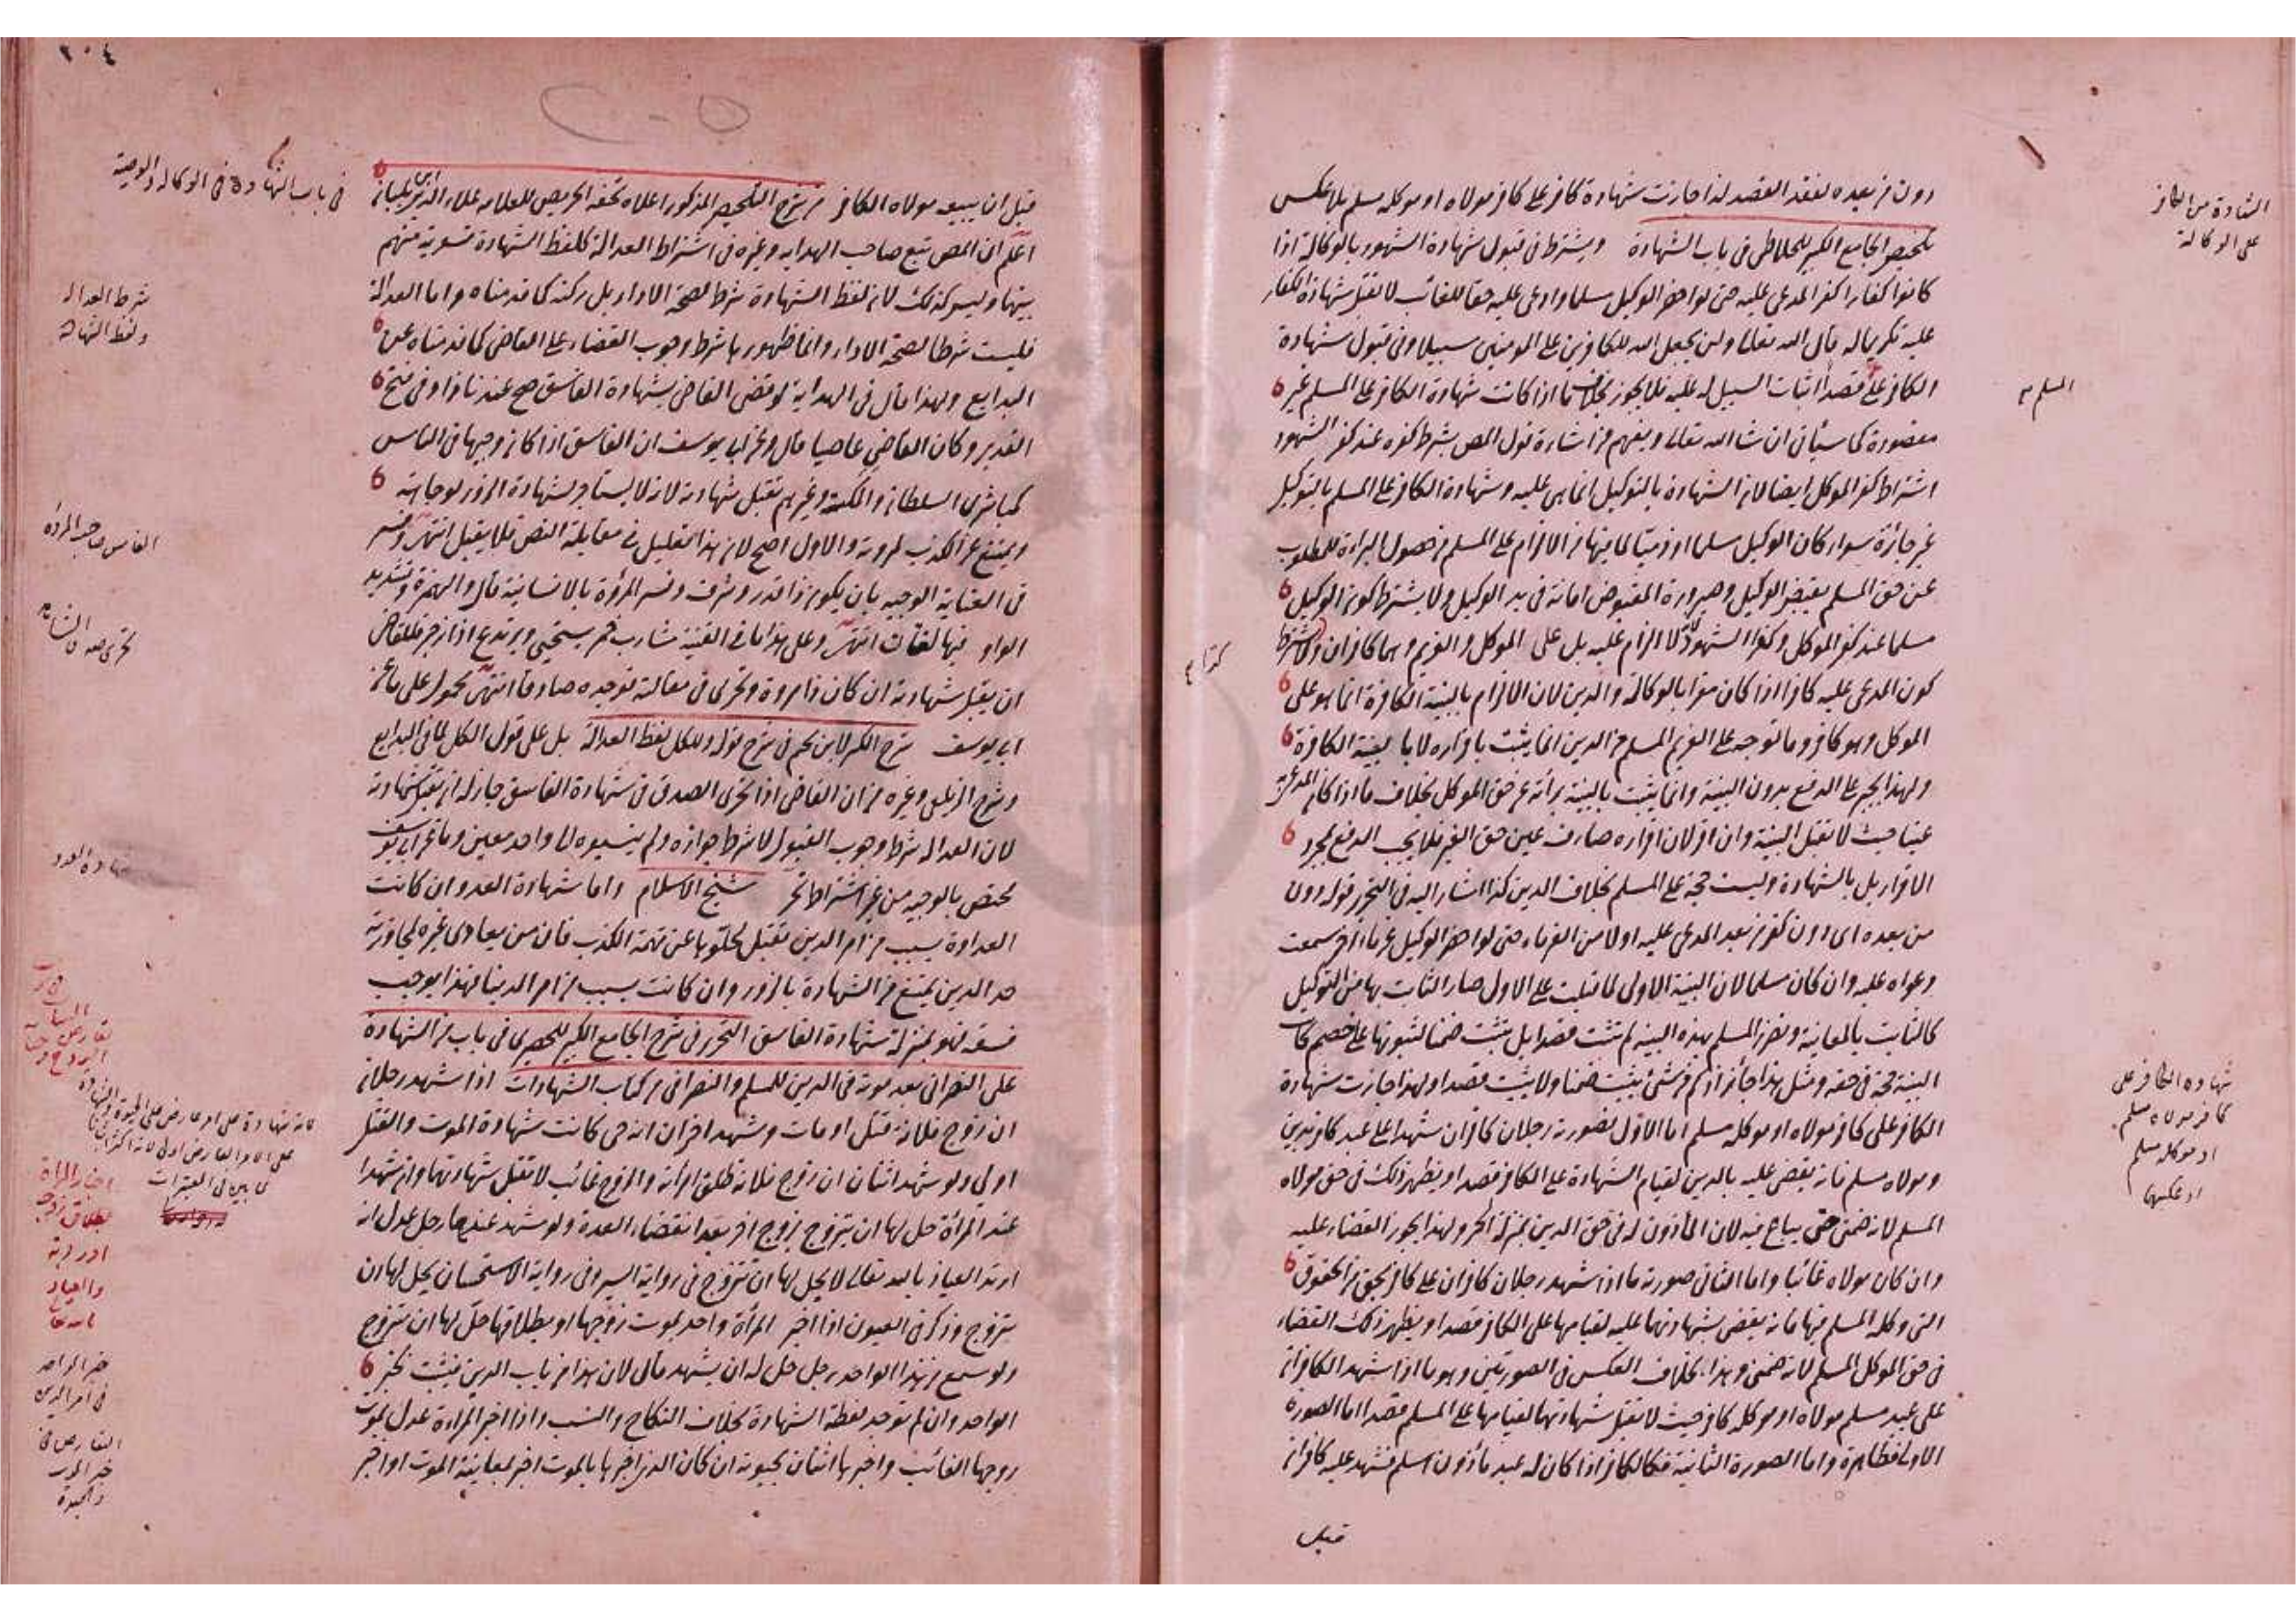 دون من بعده لفقد القصد لذا جازت شهادة كافر على كافر مولاه او موكله مسلم بلا عكس
تلخيص الجامع الكبير للخلاطي في باب الشهادة ويشترط في قبول شهادة الشهود بالوكالة اذا
كانوا كفارا كفر المدعى عليه حتى لو احضر الوكيل مسلما وادعى عليه حقا للغائب لا تقبل شهادة الكفار
عليه تكريما له قال الله تعالى ولن يجعل الله للكافرين على المومنين سبيلا وفي قبول شهادة
الكافر على قصدا اثبات السبيل له عليه فلا يجوز بخلاف ما اذا كانت شهادة الكافر على المسلم غير
مقصودة كما سيأتي ان شاء الله تعالى ويفهم من اشارة قول المص بشرط كفره عند كفر الشهود
اشتراط كفر الموكل ايضا لان الشهادة بالتوكيل انما هي عليه وشهادة الكافر على المسلم بالتوكيل
غير جائزة سواء كان الوكيل مسلما او ذميا لما فيها من الالزام على المسلم من حصول البراءة للمطلوب
عن حق المسلم بقبض الوكيل وصيرورة المقبوض امانة في يد الوكيل ولا يشترط كون الوكيل
مسلما عند كفر الموكل وكفر الشهود لانه لا الزام عليه بل على الموكل والغريم وهما كافران ولا يشترط
كون المدعى عليه كافرا اذا كان مقرا بالوكالة والدين لان الالزام بالبينة الكافرة انما هو على
الموكل وهو كافر وما توجه على الغريم المسلم من الدين انما يثبت باقراره لا بالبينة الكافرة
ولهذا يجبر على الدفع بدون البينة وانما يثبت بالبينة براءته عن حق الموكل بخلاف ما اذا كان المدعى به
عينا حيث لا تقبل البينة وان اقر لان اقراره صادف عين حق الغير فلا يجب الدفع بمجرد
الاقرار بل بالشهادة وليست حجة على المسلم بخلاف الدين كذا اشار اليه في التحرير قوله دون
من بعده اى دون كفر من بعد المدعى عليه اولا من الغرماء حتى لو احضر الوكيل غريما اخر سمعت
دعواه عليه وان كان مسلما لان البينة الاولى لما قبلت على الاول صار الثابت بها من التوكيل
كالثابت بالمعاينة وتضرر المسلم بهذه البينة لم تثبت قصدا بل تثبت ضمنا لثبوتها على خصم كانت
البينة حجة في حقه ومثل هذا جائز اذ كم من شئ يثبت ضمنا ولا يثبت قصدا ولهذا جازت شهادة
الكافر على كافر مولاه او موكله مسلم اما الاول فصورته رجلان كافران شهدا على عبد كافر بدين
ومولاه مسلم فانه يقضى عليه بالدين لقيام الشهادة على الكافر قصدا ويظهر ذلك في حق مولاه
المسلم لانه ضمني حتى يباع فيه لان المأذون له في حق الدين بمنزلة الحر ولهذا يجوز القضاء عليه
وان كان مولاه غائبا واما الثاني صورته ما اذا شهد رجلان كافران على كافر بحق من الحقوق
التي وكله المسلم فيها فانه يقضى بشهادتهما عليه لقيامها على الكافر قصدا ويظهر ذلك القضاء
في حق الموكل المسلم لانه ضمني وهذا بخلاف العكس في الصورتين وهو ما اذا شهد الكافران
على عبد مسلم مولاه او موكله كافر حيث لا تقبل شهادتهما لقيامها على المسلم قصدا اما الصورة
الاولى فظاهرة واما الصورة الثانية فكالكافر اذا كان له عبد مأذون اسلم فشهد عليه كافران
قبل
الشهادة من الكافر
على الوكالة
المسلم
شهادة الكافر على
كافر مولاه مسلم
او موكله مسلم
او عكسهما
٢٠٤
قبل ان يبيعه مولاه الكافر من شرح التلخيص المذكور اعلاه تحفة الحريص للعلامة علاء الدين بن بلبان
في باب الشهادة في الوكالة والوصية
اعلم ان المص تبع صاحب الهداية وغيره في اشتراط العدالة كلفظ الشهادة تسوية منهم
بينهما وليس كذلك لان لفظ الشهادة شرط لصحة الاداء بل ركنه كما قدمناه واما العدالة
فليست شرطا لصحة الاداء وانما ظهورها شرط وجوب القضاء على القاضي كما قدمناه عن
البدايع ولهذا قال في الهداية لو قضى القاضي بشهادة الفاسق صح عندنا زاد في فتح
القدير وكان القاضي عاصيا قال وعن ابي يوسف ان الفاسق اذا كان وجيها في الناس
كمباشرى السلطان والمكسة وغيرهم تقبل شهادته لانه لا يستأجر لشهادة الزور لوجاهته
ويمتنع عن الكذب لمروءته والاول اصح لان هذا تعليل في مقابلة النص فلا يقبل انتهى وفسر
في العناية الوجيه بان يكون ذا قدر وشرف وفسر المروءة بالانسانية قال والهمزة وتشديد
الواو فيها لغتان انتهى وعلى هذا ما في القنية شارب خمر يستحيي ويرتدع اذا زجر فللقاضي
ان يقبل شهادته ان كان ذا مروءة وتحرى في مقالته فوجده صادقا انتهى محمول على ما عن
ابي يوسف شرح الكنز لابن نجيم في شرح قوله وللكل لفظ العدالة بل على قول الكل لما في البدايع
وشرح الزيلعي وغيره من ان القاضي اذا تحرى الصدق في شهادة الفاسق جاز له ان يقبل شهادته
لان العدالة شرط وجوب القبول لا شرط جوازه ولم ينسبوه الى واحد معين وما عن ابي يوسف
مختص بالوجيه من غير اشتراط تحر شيخ الاسلام واما شهادة العدو ان كانت
العداوة بسبب من امر الدين تقبل لخلوها عن تهمة الكذب فان من يعادى غيره لمجاوزته
حد الدين يمتنع من الشهادة بالزور وان كانت بسبب من امر الدنيا فهذا يوجب
فسقه فهو بمنزلة شهادة الفاسق التحرير في شرح الجامع الكبير للحصيري في باب من الشهادة
على النصراني بعد موته في الدين للمسلم والنصراني من كتاب الشهادات اذا شهد رجلان
ان زوج فلانة قتل او مات وشهد اخران انه حي كانت شهادة الموت والقتل
اولى ولو شهد اثنان ان زوج فلانة طلق امرأته والزوج غائب لا تقبل شهادتهما وان شهدا
عند المرأة حل لها ان تتزوج بزوج اخر بعد انقضاء العدة ولو شهد عندها رجل عدل انه
ارتد العياذ بالله تعالى لا يحل لها ان تتزوج في رواية السير وفي رواية الاستحسان يحل لها ان
تتزوج وذكر في العيون اذا اخبر المرأة واحد بموت زوجها او بطلاقها حل لها ان تتزوج
ولو سمع من هذا الواحد رجل حل له ان يشهد قال لان هذا من باب الدين فيثبت بخبر
الواحد وان لم توجد لفظة الشهادة بخلاف النكاح والنسب واذا اخبر المراءة عدل بموت
زوجها الغائب واخبرها اثنان بحيوته ان كان الذي اخبرها بالموت اخبر بمعاينة الموت او اخبر
شرط العدالة
ولفظ الشهادة
الفاسق صاحب المروءة
شهادة العدو
اخبار المرأة
بطلاق زوج
او ردته
والعياذ
بالله تعالى
خبر الواحد
في امر الدين
التعارض في
خبر الموت
والحيوة